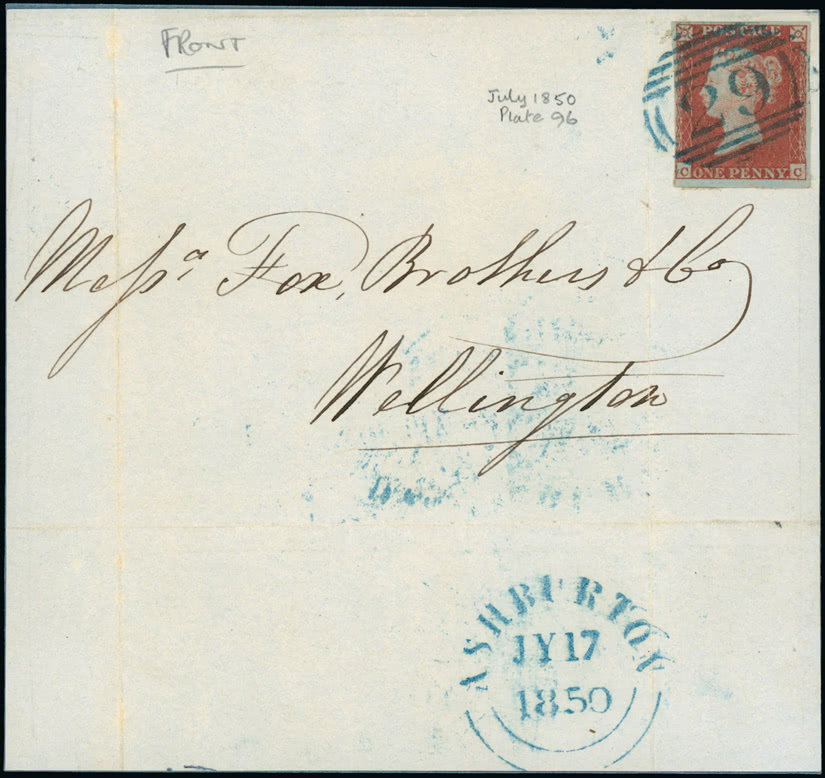 FRONT
July 1850
Plate 96
POSTAGE
29
C ONE PENNY. C
Messrs Fox, Brothers & Co
Wellington
ASHBURTON
JY 17
1850